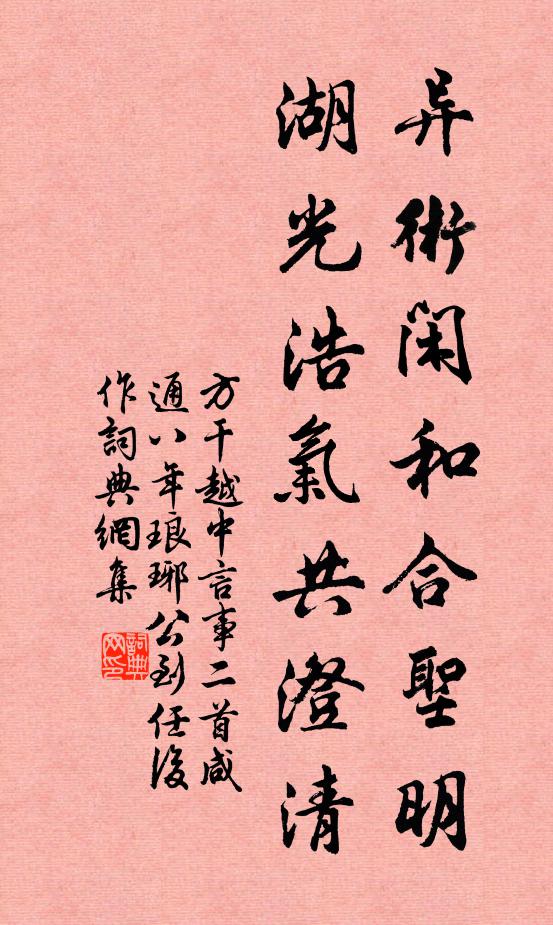 异術閑和合聖明
湖光浩氣共澄清
方干越中言事二首咸
通八年琅琊公到任後
作詞典網集
詞典
网印